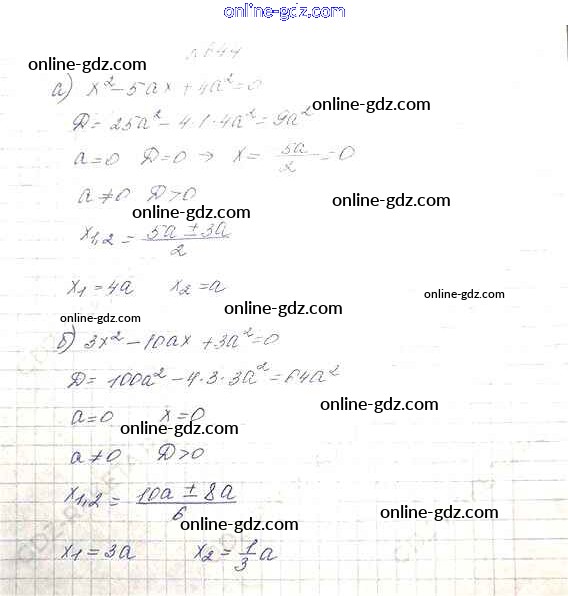 online-gdz.com
№644
online-gdz.com
а) x² - 5ax + 4a² = 0
online-gdz.com
D = 25a² - 4·1·4a² = 9a²
a = 0 D = 0 → x = 5a/2 = 0
a ≠ 0 D > 0
online-gdz.com
x₁,₂ = (5a ± 3a)/2
online-gdz.com
x₁ = 4a x₂ = a
online-gdz.com
online-gdz.com
б) 3x² - 10ax + 3a² = 0
D = 100a² - 4·3·3a² = 64a²
online-gdz.com
a = 0 x = 0
online-gdz.com
a ≠ 0 D > 0
x₁,₂ = (10a ± 8a)/6
online-gdz.com
online-gdz.com
x₁ = 3a x₂ = 1/3 a